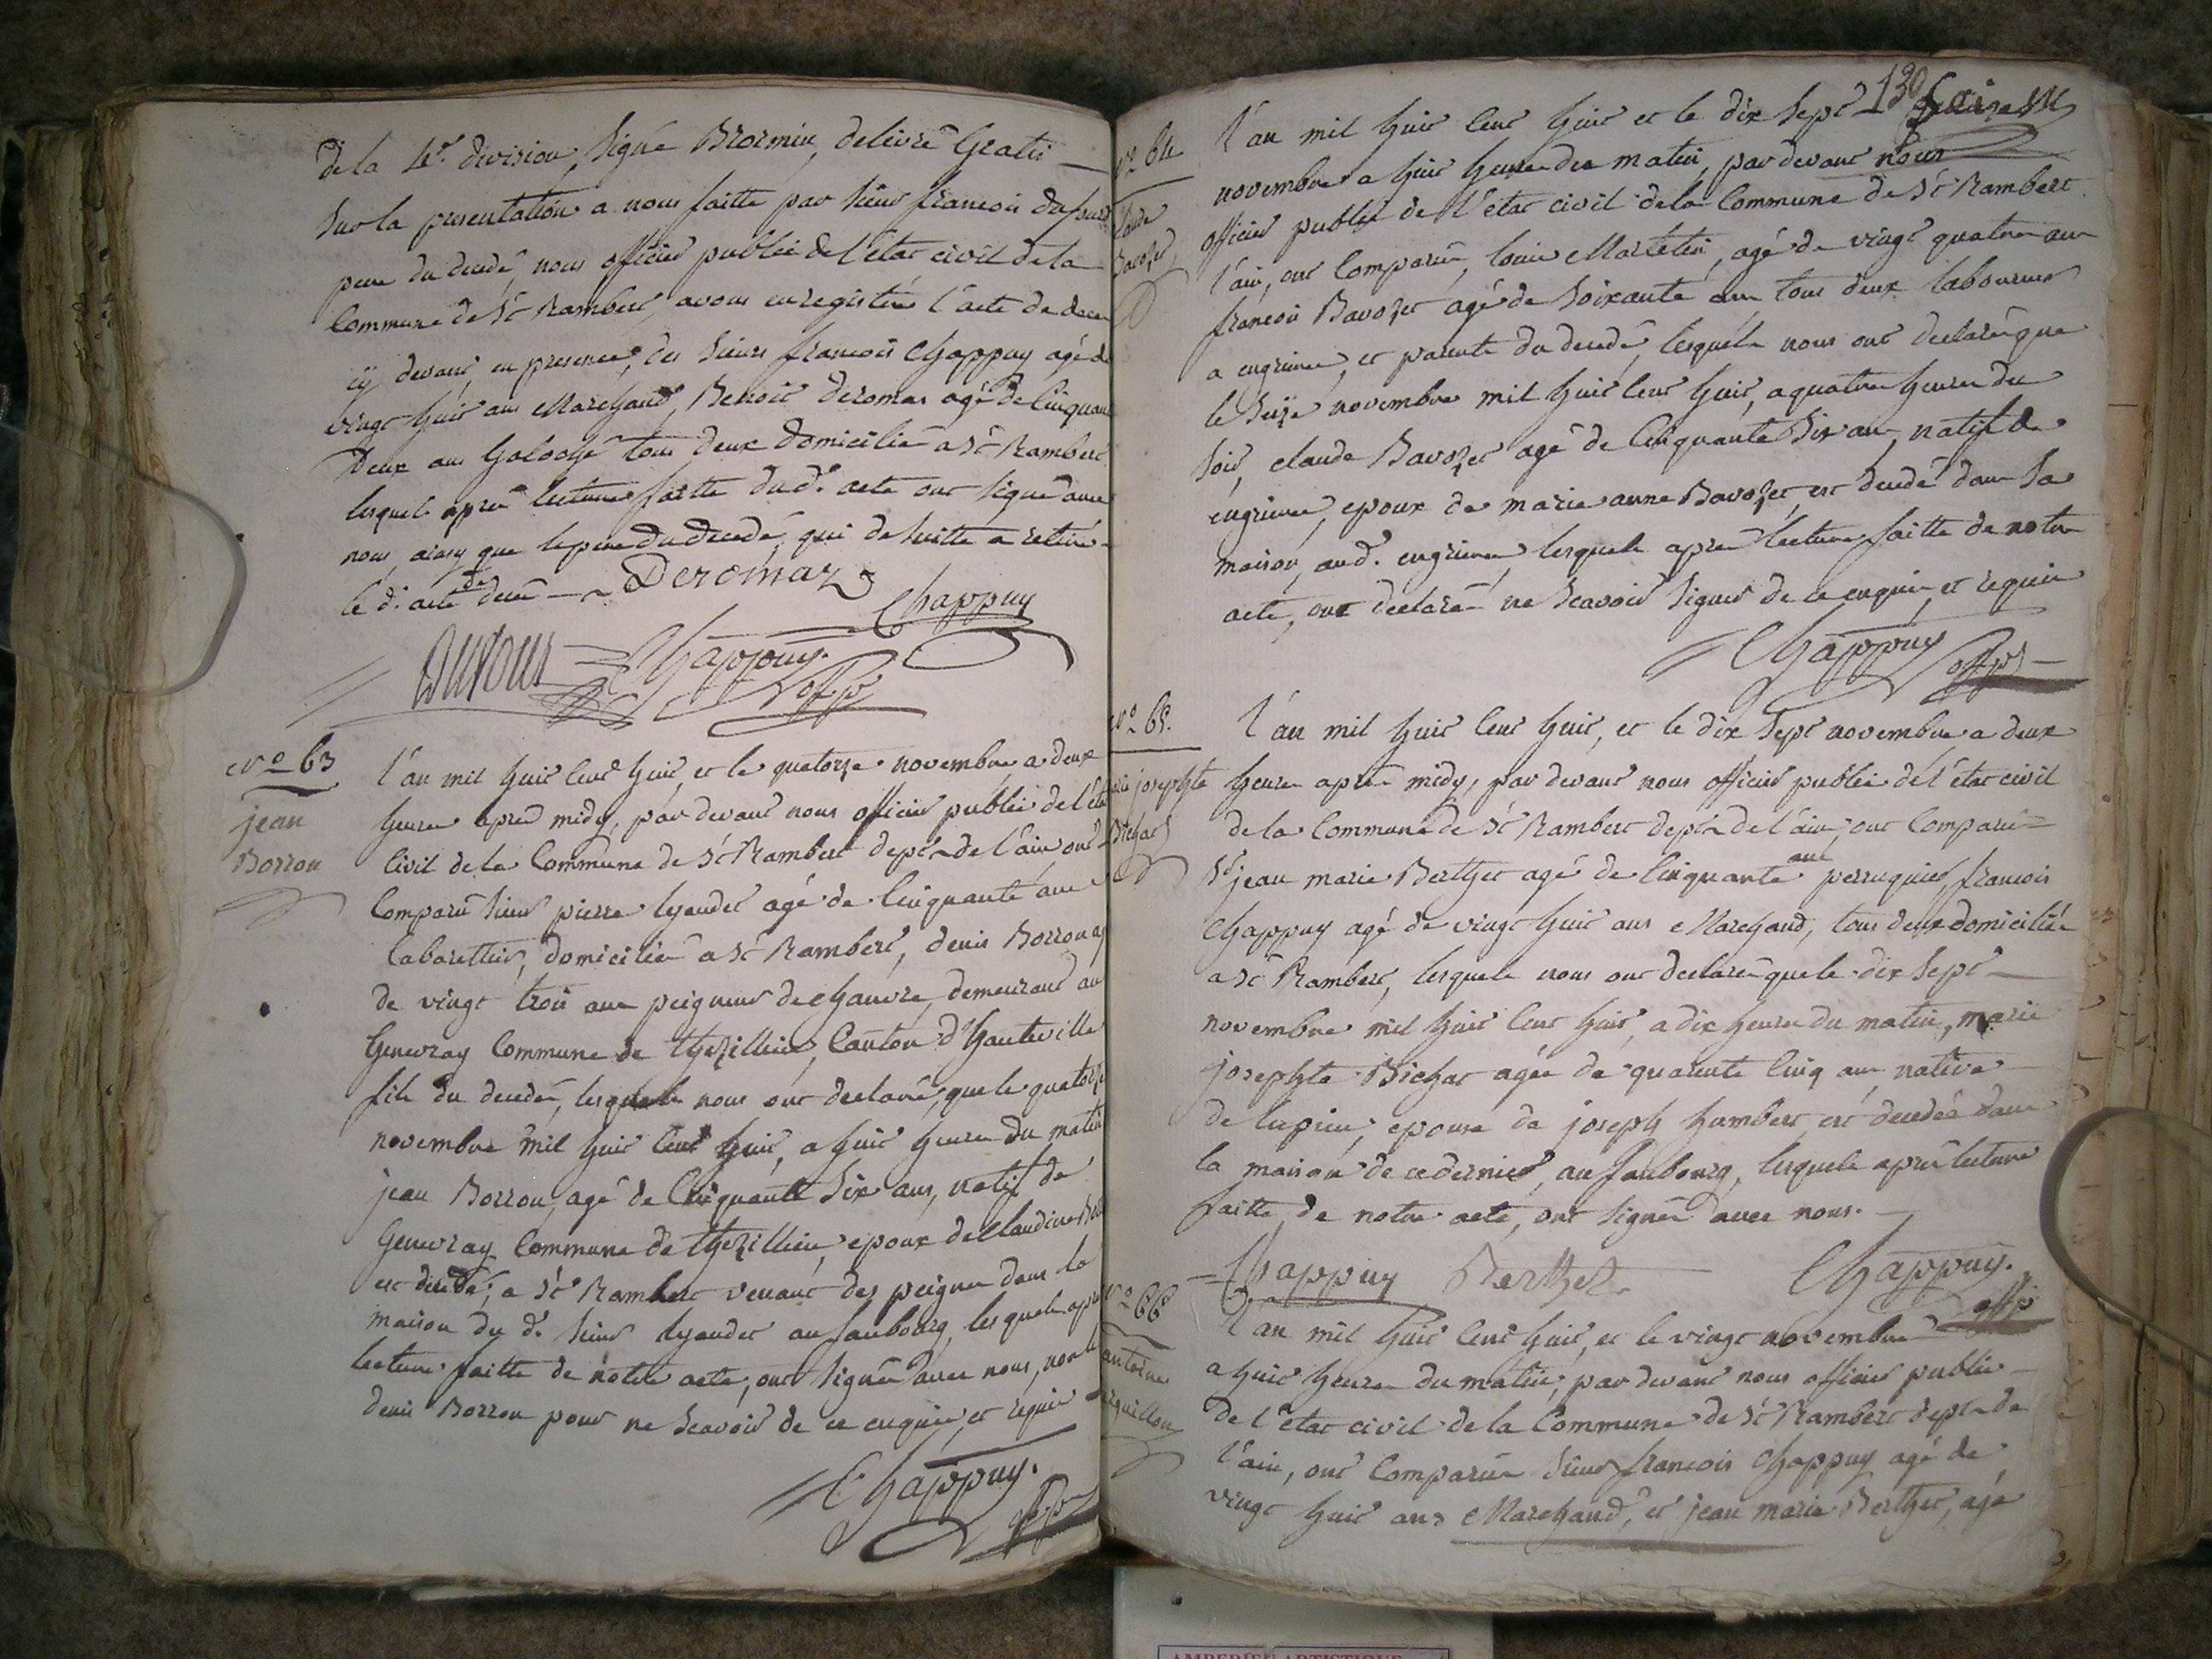 de la 4e. division, Signé Brormin, delivré Gratis
Sur la presentation a nous faitte par Sieur francois dufour
pere du decedé, nous officier public de l'état civil de la
Commune de St Rambert, avons enregistré l'acte de deces
cy devant, en presence, des Sieurs francois Chappuy agé de
vingt huit ans Marchand, Benoit deromas agé de Cinquante
Deux ans Galoché tous deux domicilié a St Rambert
lesquels aprés lecture faitte dud. acte ont signé avec
nous, ainsy que le pere du decedé, qui de suitte a retiré
le d. acte de decés
Deromaz Chappuy
Dufour Chappuy.
off. p.
No 63
jean
Borron
l'an mil huit Cent huit, et le quatorze novembre a deux
heures apres midy, par devant nous officier public de l'état
Civil de la Commune de St Rambert dept. de l'ain ont
Comparu Sieur pierre lyaudet agé de Cinquante ans
Cabarettier, domicilié a St Rambert, denis Borron agé
de vingt trois ans peigneur de chanvre, demeurant au
Genevray Commune de thezillieu, Canton d'hauteville
fils du decedé, lesquels nous ont declaré, que le quatorze
novembre mil huit Cent huit, a huit heures du matin
jean Borron, agé de Cinquante Six ans, natif de
Genevray Commune de thezillieu epoux de Claudine
est decedé, a St Rambert venant des peignes dans la
maison du d. Sieur lyaudet au faubourg, lesquels après
lecture faitte de notre acte, ont signé avec nous, non le
denis Borron pour ne scavoir de ce enquis et requis
Chappuy.
off. p.
130
No 64
Claude
Bavozet
l'an mil huit Cent huit et le dix Sept
novembre a huit heures du matin, par devant nous
officier public de l'état civil de la Commune de St Rambert
l'ain, ont Comparu, louis Martelin, agé de vingt quatre ans
francois Bavozet agé de Soixante ans tous deux laboureurs
a engrieve, et parents du decedé, lesquels nous ont declaré que
le Seize novembre mil huit Cent huit, a quatre heures du
Soir, claude Bavozet agé de Cinquante Six ans, natif de
engrieve, epoux de marie anne Bavozet, est decedé dans Sa
maison, aud. engrieve, lesquels apres lecture faitte de notre
acte, ont declaré ne Scavoir Signer de ce enquis et requis
Chappuy
off. p.
No 65.
marie josephte
Bichat
l'an mil huit Cent huit, et le dix Sept novembre a deux
heures aprés midy, par devant nous officier public de l'état civil
de la Commune de St Rambert dept. de l'ain, ont Comparu
Sr jean marie Berthet agé de Cinquante ans perruquier, francois
Chappuy agé de vingt huit ans Marchand, tous deux domicilié
a St Rambert, lesquels nous ont declaré que le dix Sept
novembre mil huit Cent huit, a dix heures du matin, marie
josephte Bichat agée de quarente Cinq ans native
de lupieu, epouse de joseph humbert, est decedée dans
la maison de ce dernier, au faubourg, lesquels aprés lecture
faitte de notre acte, ont signé avec nous.
Chappuy Berthet Chappuy.
off. p.
No 66
antoine
l'an mil huit Cent huit, et le vingt novembre
a huit heures du matin, par devant nous officier public
de l'état civil de la Commune de St Rambert dept. de
l'ain, ont Comparu Sieur francois Chappuy agé de
vingt huit ans Marchand, et jean marie Berthet, agé
AMBERIEU ARTISTIQUE